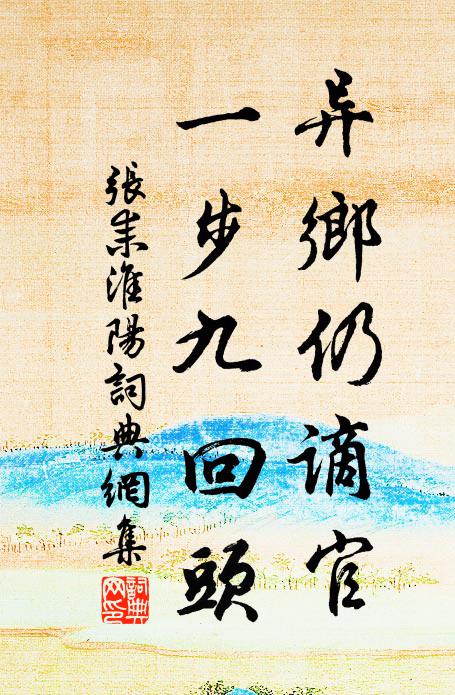 异鄉仍謫官
一步九回頭
張耒淮陽詞典網集
詞典網印